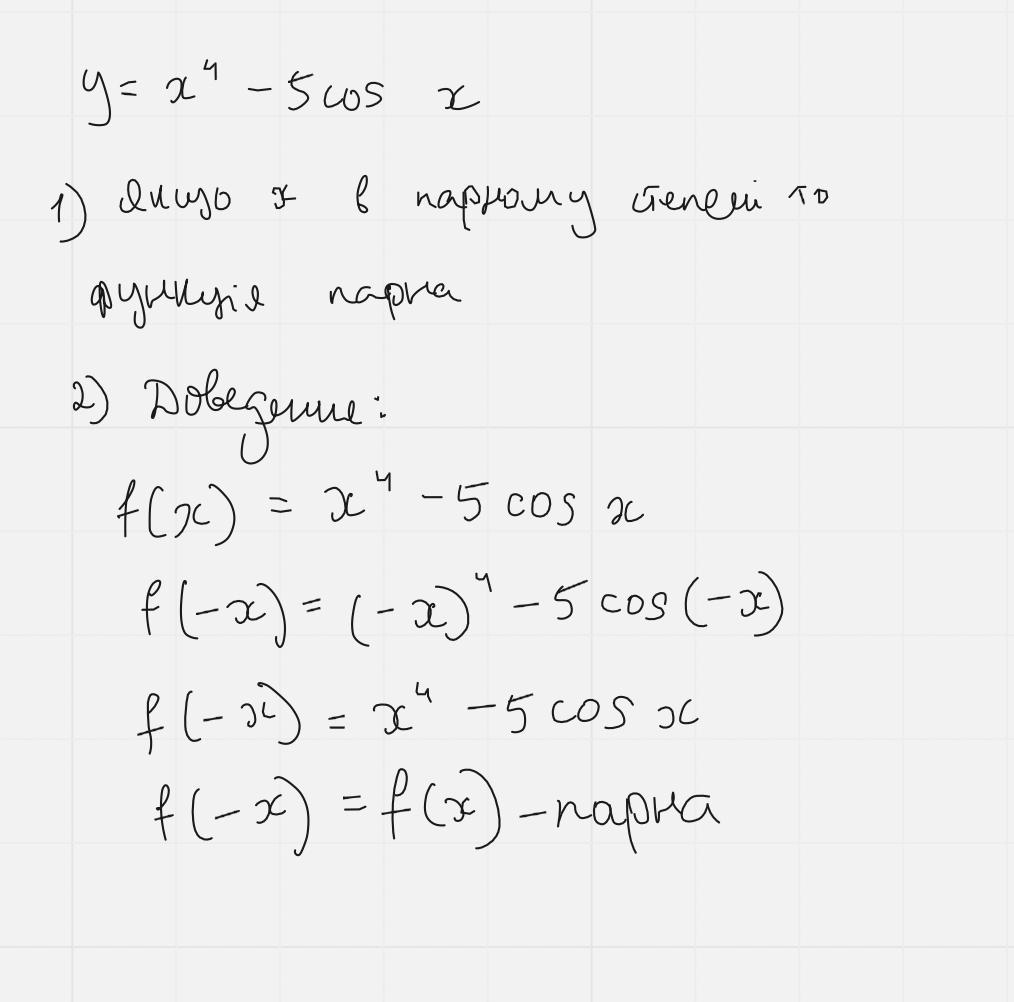 y = x⁴ - 5 cos x
1) Якщо x в парному степені то
функція парна
2) Доведення:
f(x) = x⁴ - 5 cos x
f(-x) = (-x)⁴ - 5 cos(-x)
f(-x) = x⁴ - 5 cos x
f(-x) = f(x) - парна